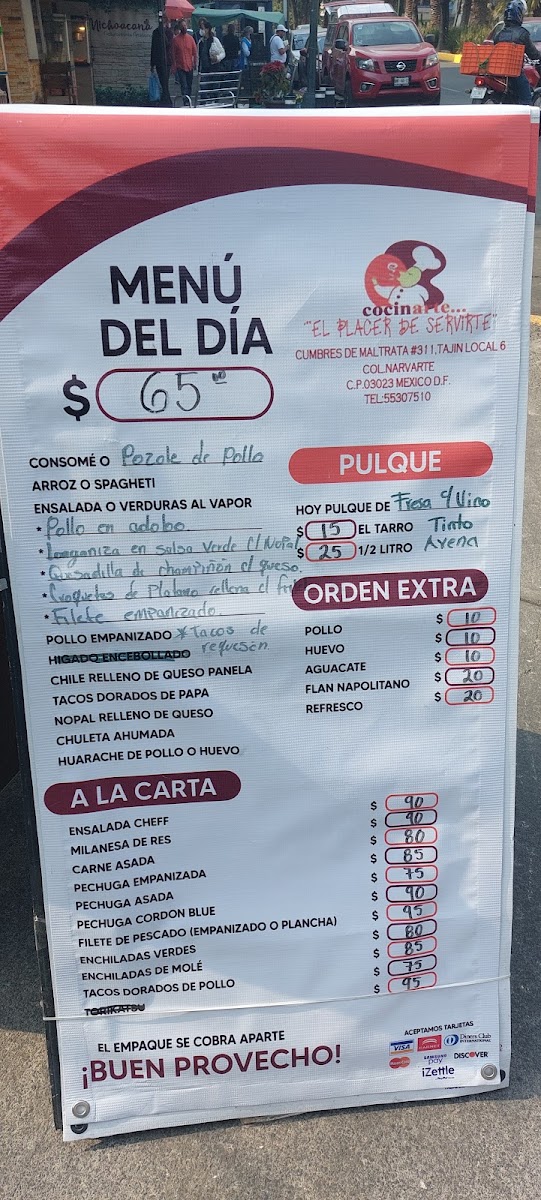 Michoacana
MENÚ
DEL DÍA
$ 65 00
cocinarte...
"EL PLACER DE SERVIRTE"
CUMBRES DE MALTRATA #311,TAJIN LOCAL 6
COL.NARVARTE
C.P.03023 MEXICO D.F.
TEL:55307510
CONSOMÉ O Pozole de Pollo
ARROZ O SPAGHETI
ENSALADA O VERDURAS AL VAPOR
* Pollo en adobo
* Longaniza en salsa verde c/ Nopal
* Quesadilla de champiñon c/ queso.
* Croquetas de Platano rellena c/
* Filete empanizado
POLLO EMPANIZADO * Tacos de
HIGADO ENCEBOLLADO requeson
CHILE RELLENO DE QUESO PANELA
TACOS DORADOS DE PAPA
NOPAL RELLENO DE QUESO
CHULETA AHUMADA
HUARACHE DE POLLO O HUEVO
PULQUE
HOY PULQUE DE Fresa c/ Vino
$ 15 EL TARRO Tinto
$ 25 1/2 LITRO Avena
ORDEN EXTRA
POLLO $ 10
HUEVO $ 10
AGUACATE $ 10
FLAN NAPOLITANO $ 20
REFRESCO $ 20
A LA CARTA
ENSALADA CHEFF $ 90
MILANESA DE RES $ 90
CARNE ASADA $ 80
PECHUGA EMPANIZADA $ 85
PECHUGA ASADA $ 75
PECHUGA CORDON BLUE $ 90
FILETE DE PESCADO (EMPANIZADO O PLANCHA) $ 95
ENCHILADAS VERDES $ 80
ENCHILADAS DE MOLÉ $ 85
TACOS DORADOS DE POLLO $ 75
TORIKATSU $ 95
EL EMPAQUE SE COBRA APARTE
¡BUEN PROVECHO!
ACEPTAMOS TARJETAS
VISA
Diners Club
INTERNATIONAL
SAMSUNG
pay
DISCOVER
iZettle